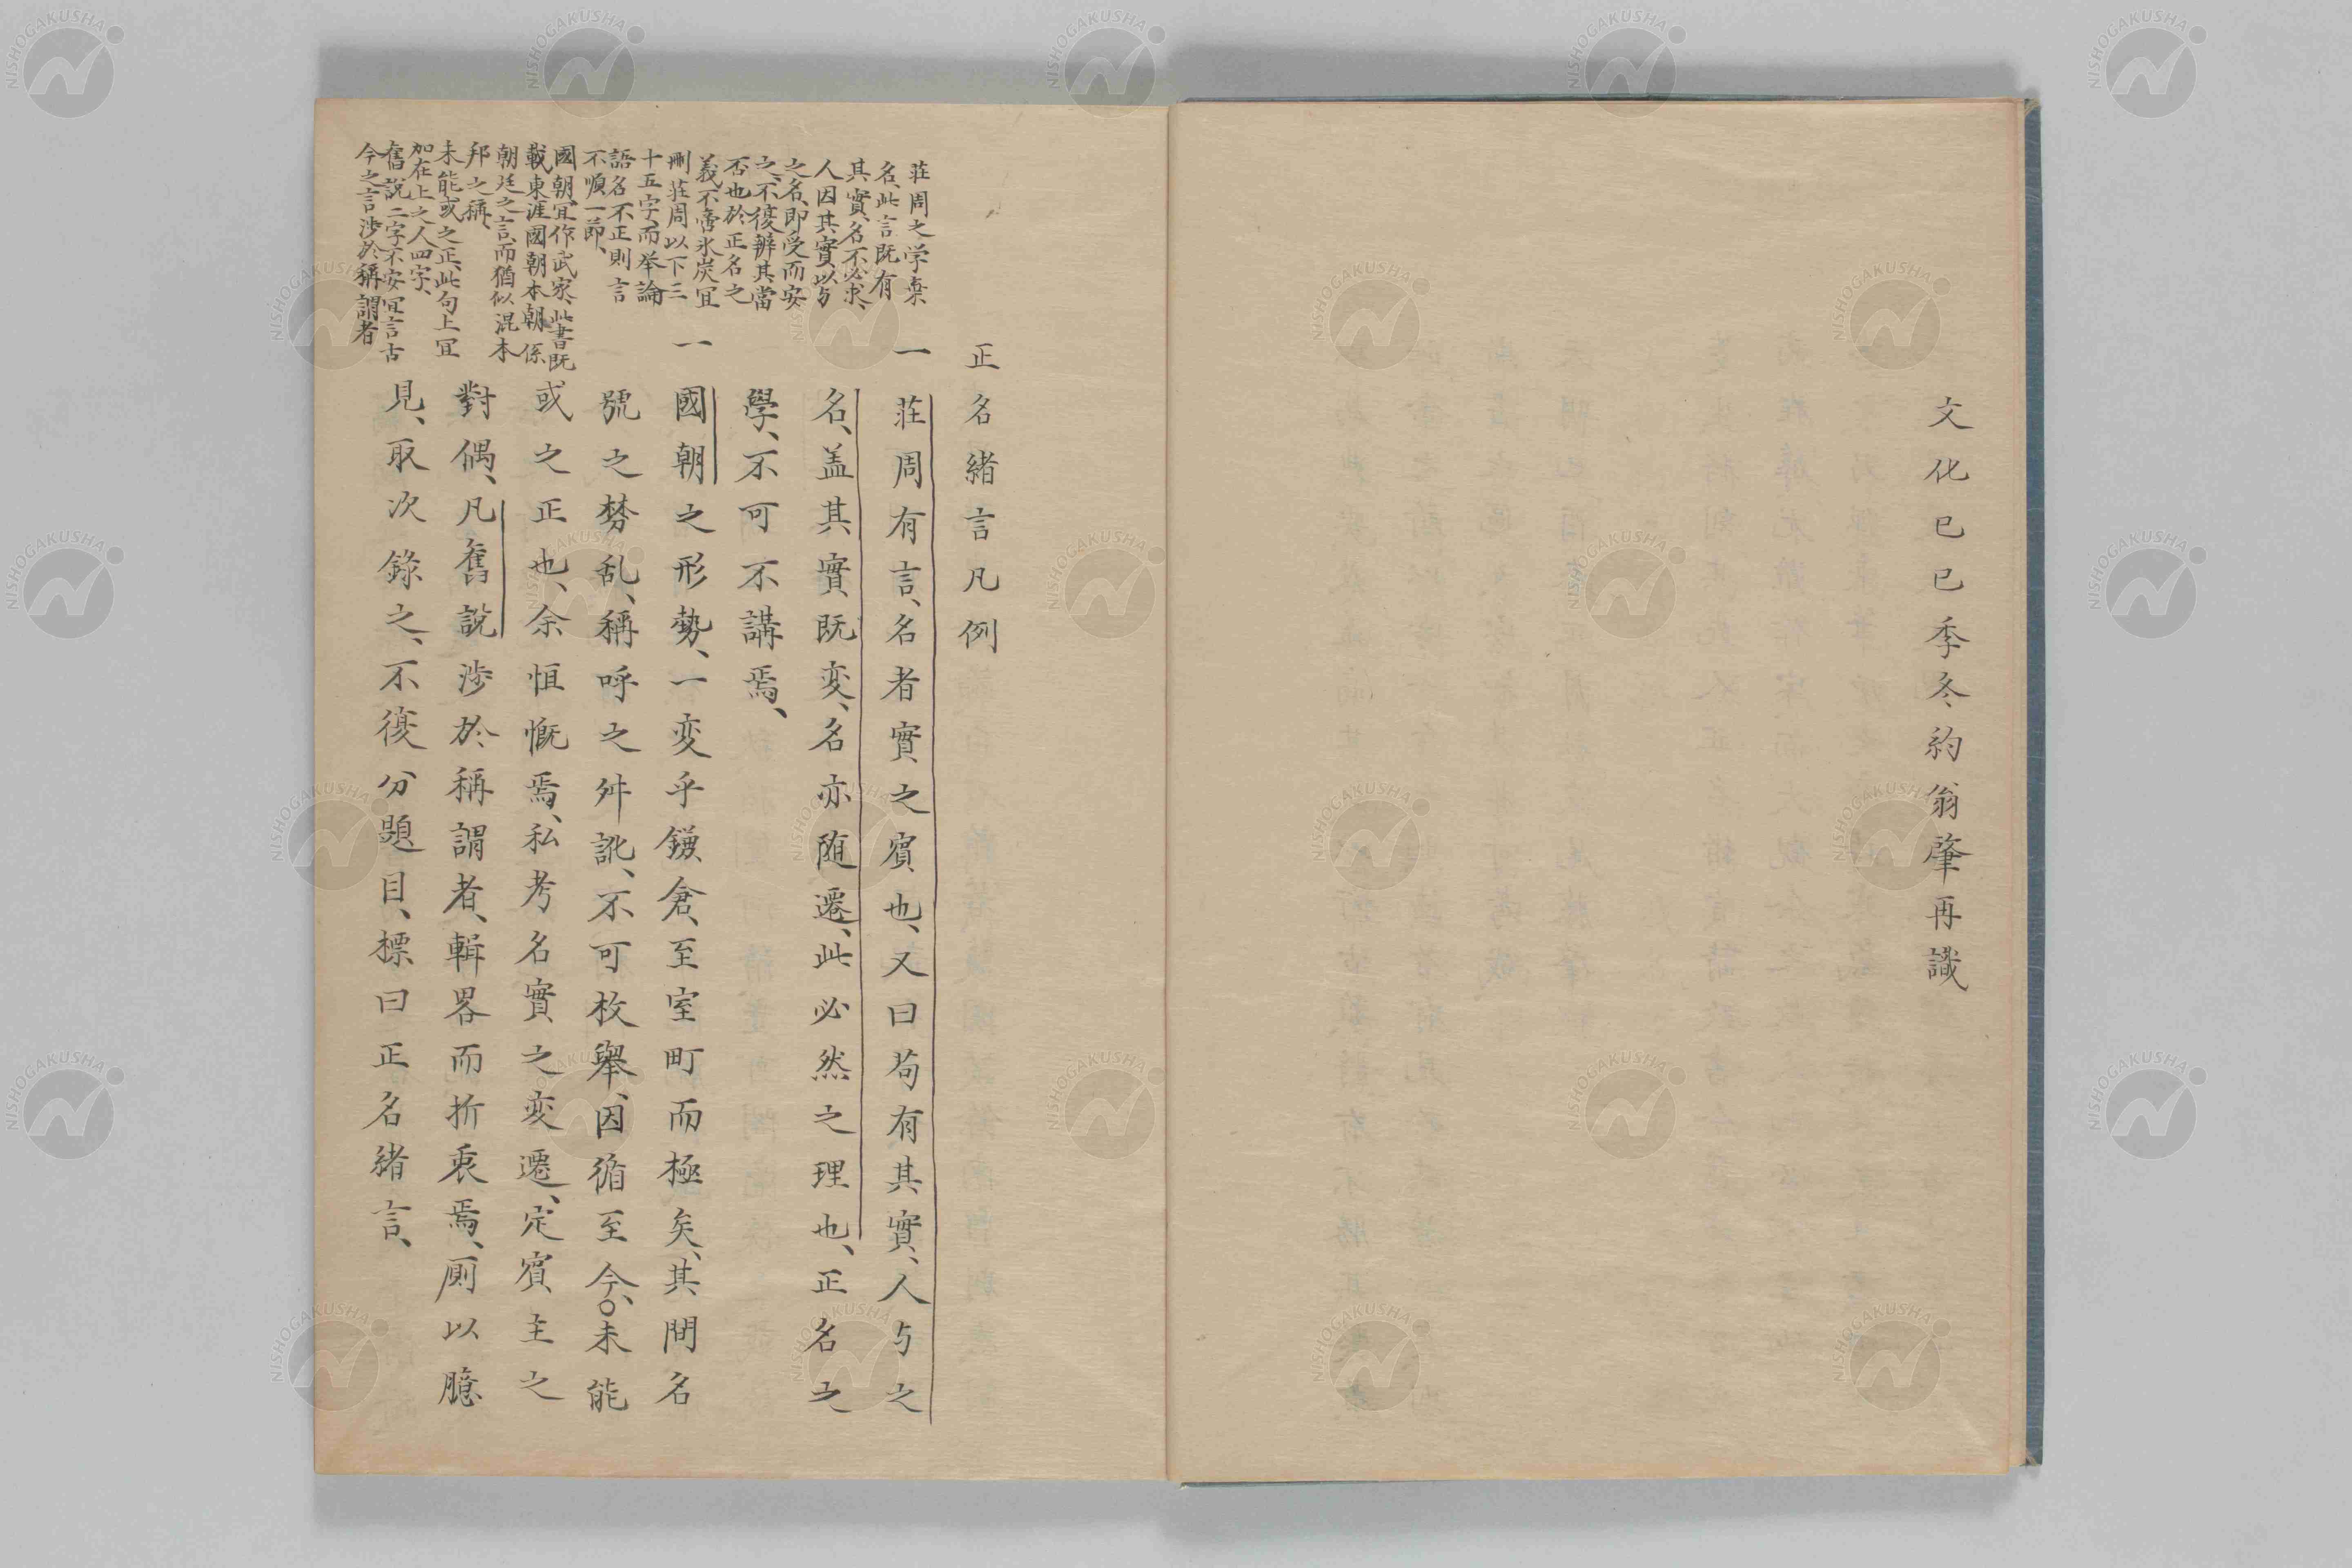 文化己巳季冬約翁肇再識
正名緒言凡例
一
莊周有言、名者實之賓也、又曰苟有其實、人与之
名、盖其實既変、名亦随遷、此必然之理也、正名之
學、不可不講焉、
一
國朝之形勢、一変乎鎌倉、至室町而極矣、其間名
號之棼乱、稱呼之舛訛、不可枚舉、因循至今、○未能
或之正也、余恒慨焉、私考名實之変遷、定賓主之
對偶、凡舊説渉於稱謂者、輯畧而折衷焉、厠以臆
見、取次錄之、不復分題目、標曰正名緒言、
莊周之学棄
名、此言既有
其實、名不必求、
人因其實以与
之名、即受而安
之、不復辨其當
否也於正名之
義、不啻氷炭宜
刪莊周以下三
十五字、而举論
語名不正則言
不順一節、
國朝、宜作武家、此書既
載東涯國朝本朝係
朝廷之言、而猶似混本
邦之稱、
未能或之正、此句上宜
加在上之人四字、
舊説二字不安宜言古
今之言渉於稱謂者